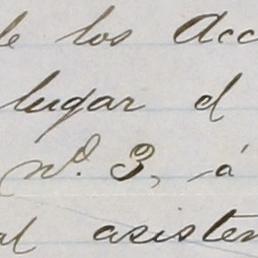 de los Acc
lugar el
nº. 3, á
al asisten